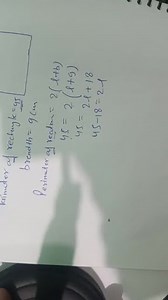 Perimeter of rectangle = 45
breadth = 9 cm
Perimeter of rectan = 2(l+b)
45 = 2(l+9)
45 = 2l+18
45-18 = 2l